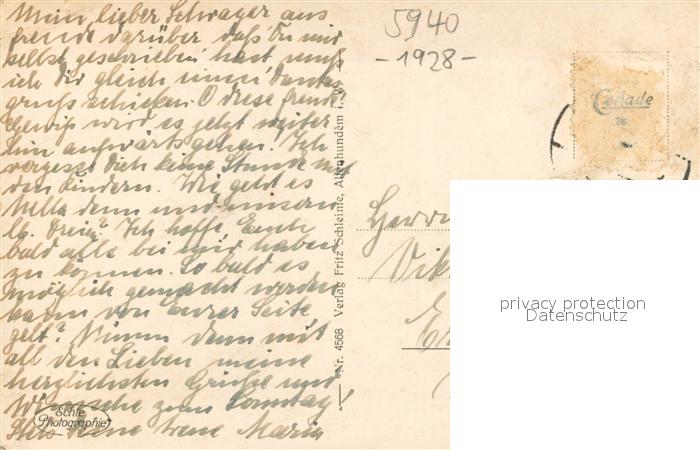 Mein lieber Schwager aus
freude darüber daß Du mir
selbst geschrieben hast muß
ich dir gleich einen Dankes
gruß schicken. O diese freude!
Gewiß wird es jetzt weiter
hin aufwärts gehen. Ich
vergesse dich keine Stunde mit
den Kindern. Wie geht es
denn und unsern
lb. Ich hoffe, Euch
bald alle bei mir haben
zu können. So bald es
möglich gemacht werden
kann von Eurer Seite,
gelt? Nimm denn mit
all den Lieben meine
herzlichsten Grüße und
Wünsche zum Sonntag!
Maria
Echte
Photographie
Nr. 4568 Verlag Fritz Schleinfe, Altenhundem i. W.
5940
-1928-
Ceriade
28
Herrn
Vik
privacy protection
Datenschutz